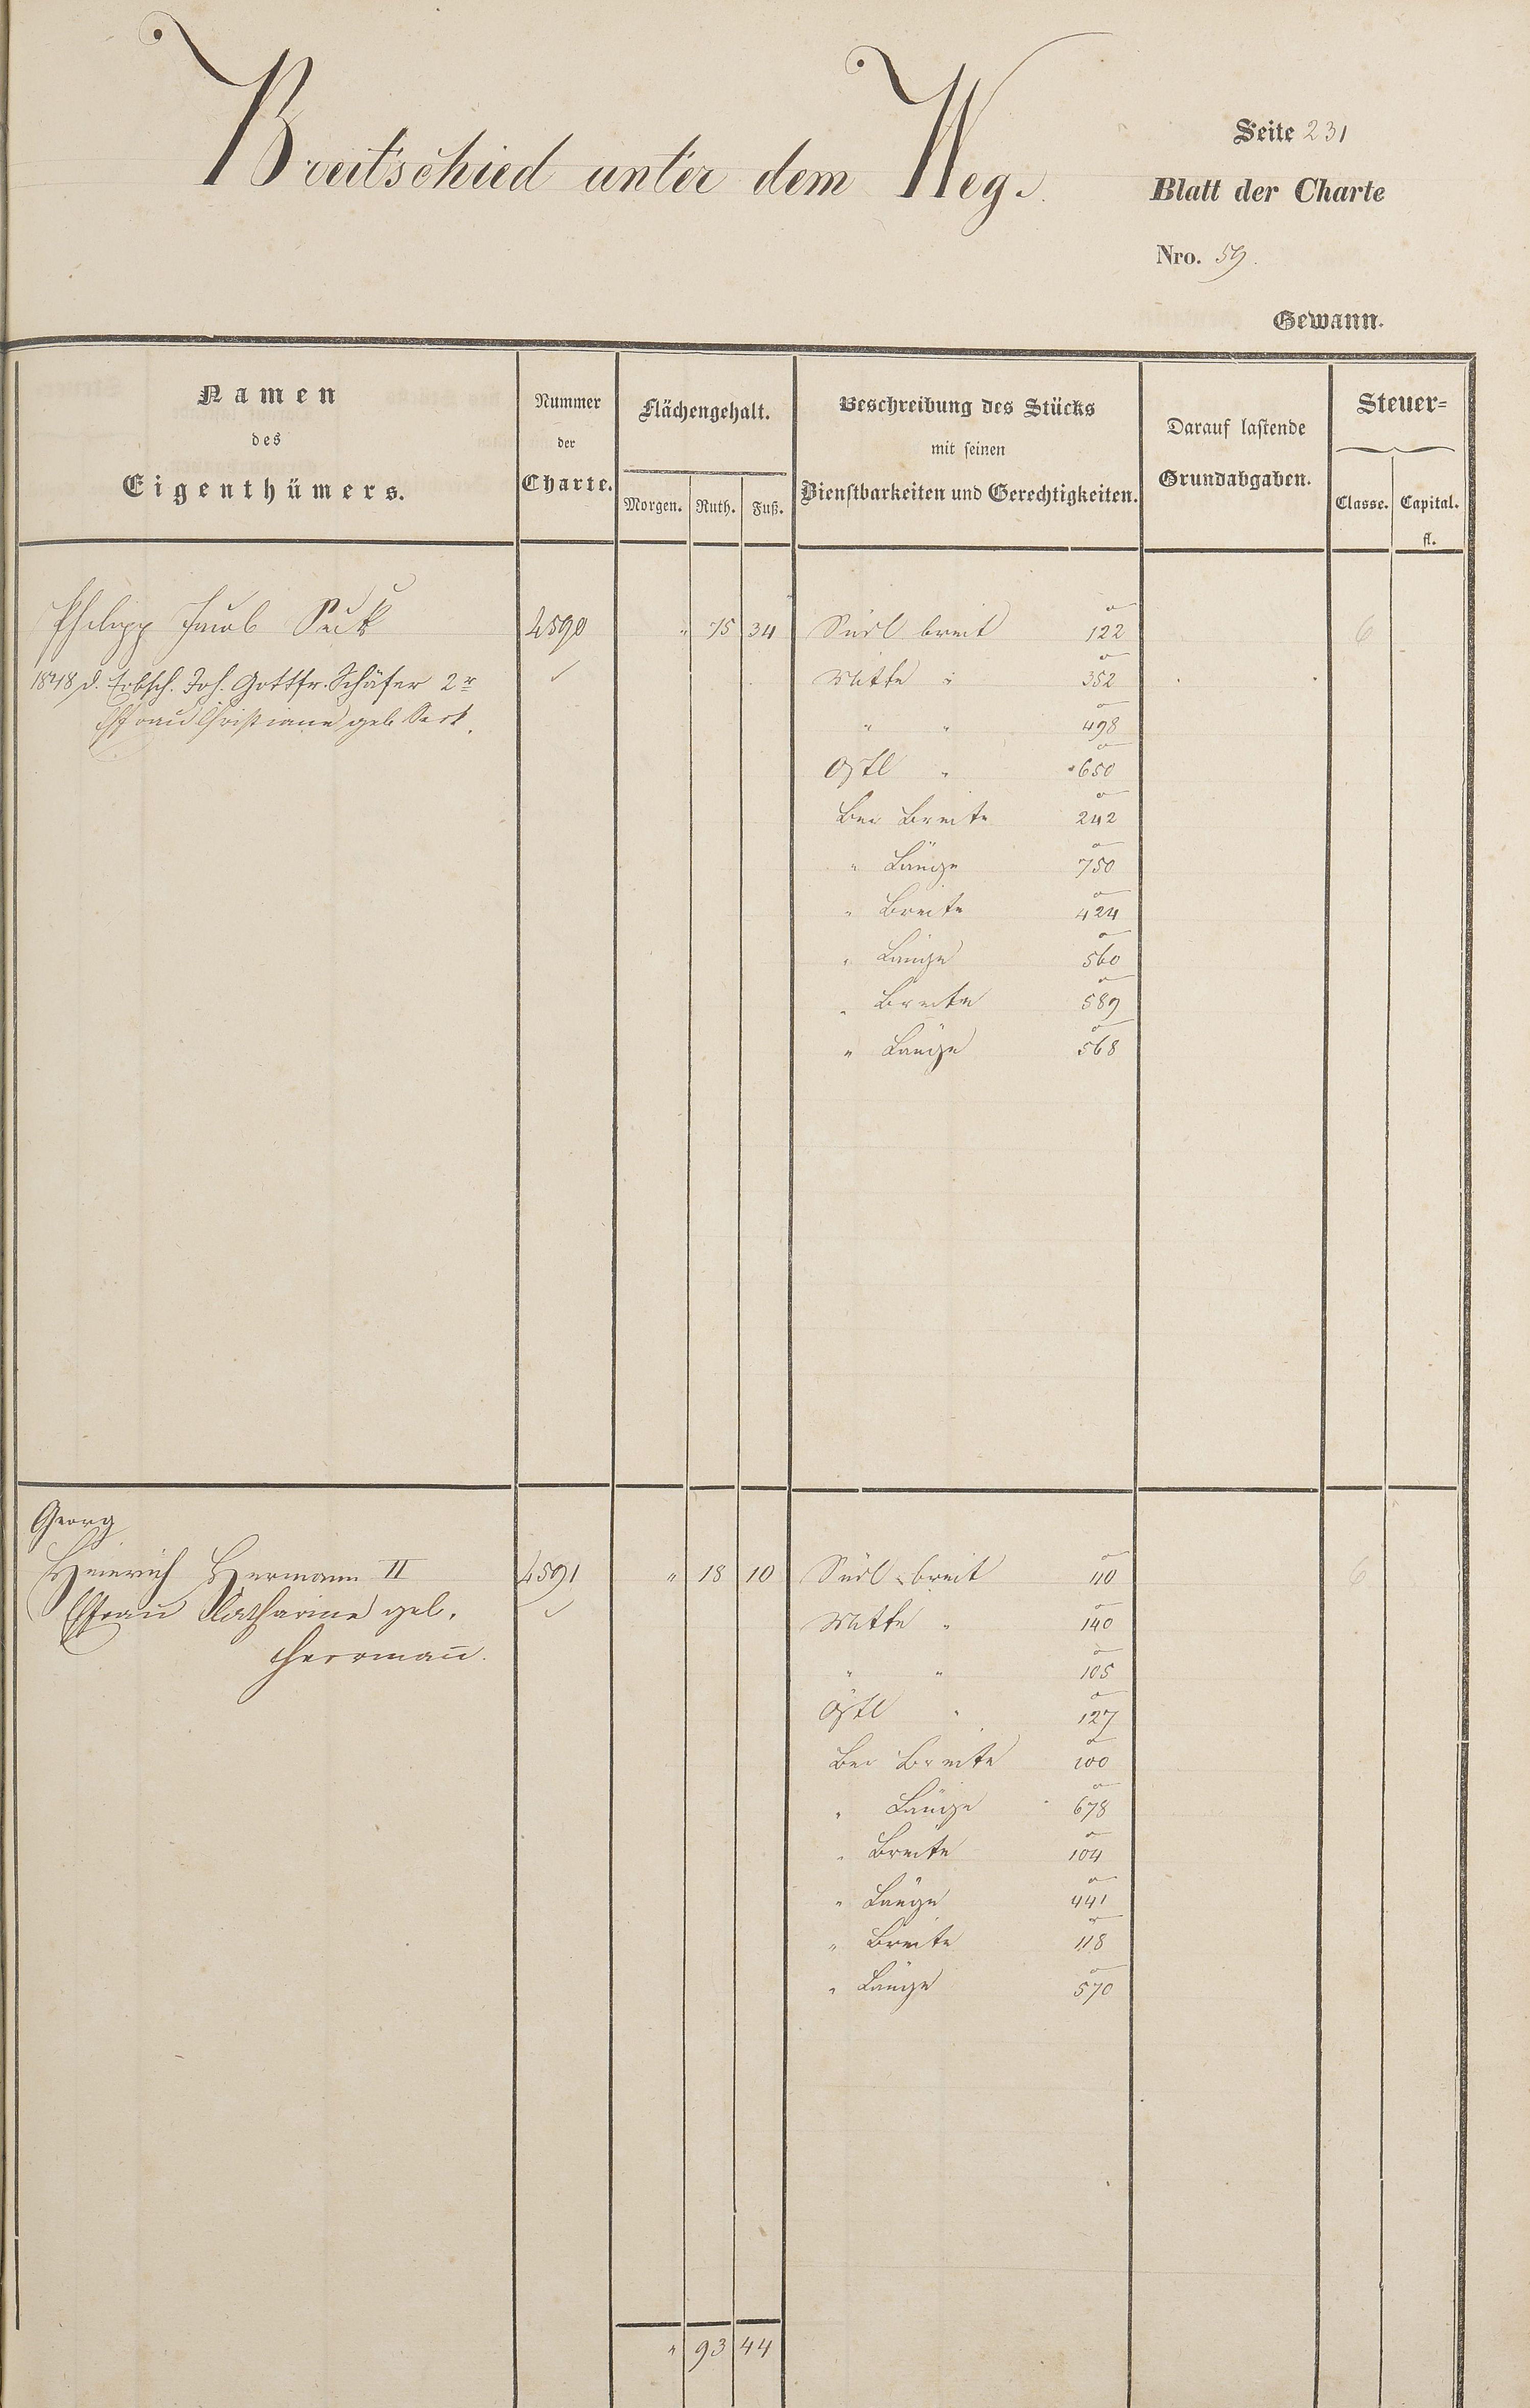 Breitschied unter dem Weg.
Seite 231
Blatt der Charte
Nro. 59.
Gewann.
Namen
des
Eigenthümers.
Nummer
der
Charte.
Flächengehalt.
Morgen. Ruth. Fuß.
Beschreibung des Stücks
mit seinen
Dienstbarkeiten und Gerechtigkeiten.
Darauf lastende
Grundabgaben.
Steuer=
Classe. Capital.
fl.
Philipp Jacob Seck 4590 " 75 34 Südl breit 122 6
1848 d. Erbsch. Joh. Gottfr. Schäfer 2r Mitte " 352
Ehfrau Christiane geb. Seck. " " 498
Östl " 650
Bei Breite 242
" Länge 750
" Breite 424
" Länge 560
" Breite 589
" Länge 568
Georg
Heinrich Hermann II 4591 " 18 10 Südl breit 110 6
Ehfrau Katharine geb. Mitte " 140
Herrmann. " " 105
Östl " 127
Bei Breite 100
" Länge 678
" Breite 104
" Länge 441
" Breite 118
" Länge 570
" 93 44